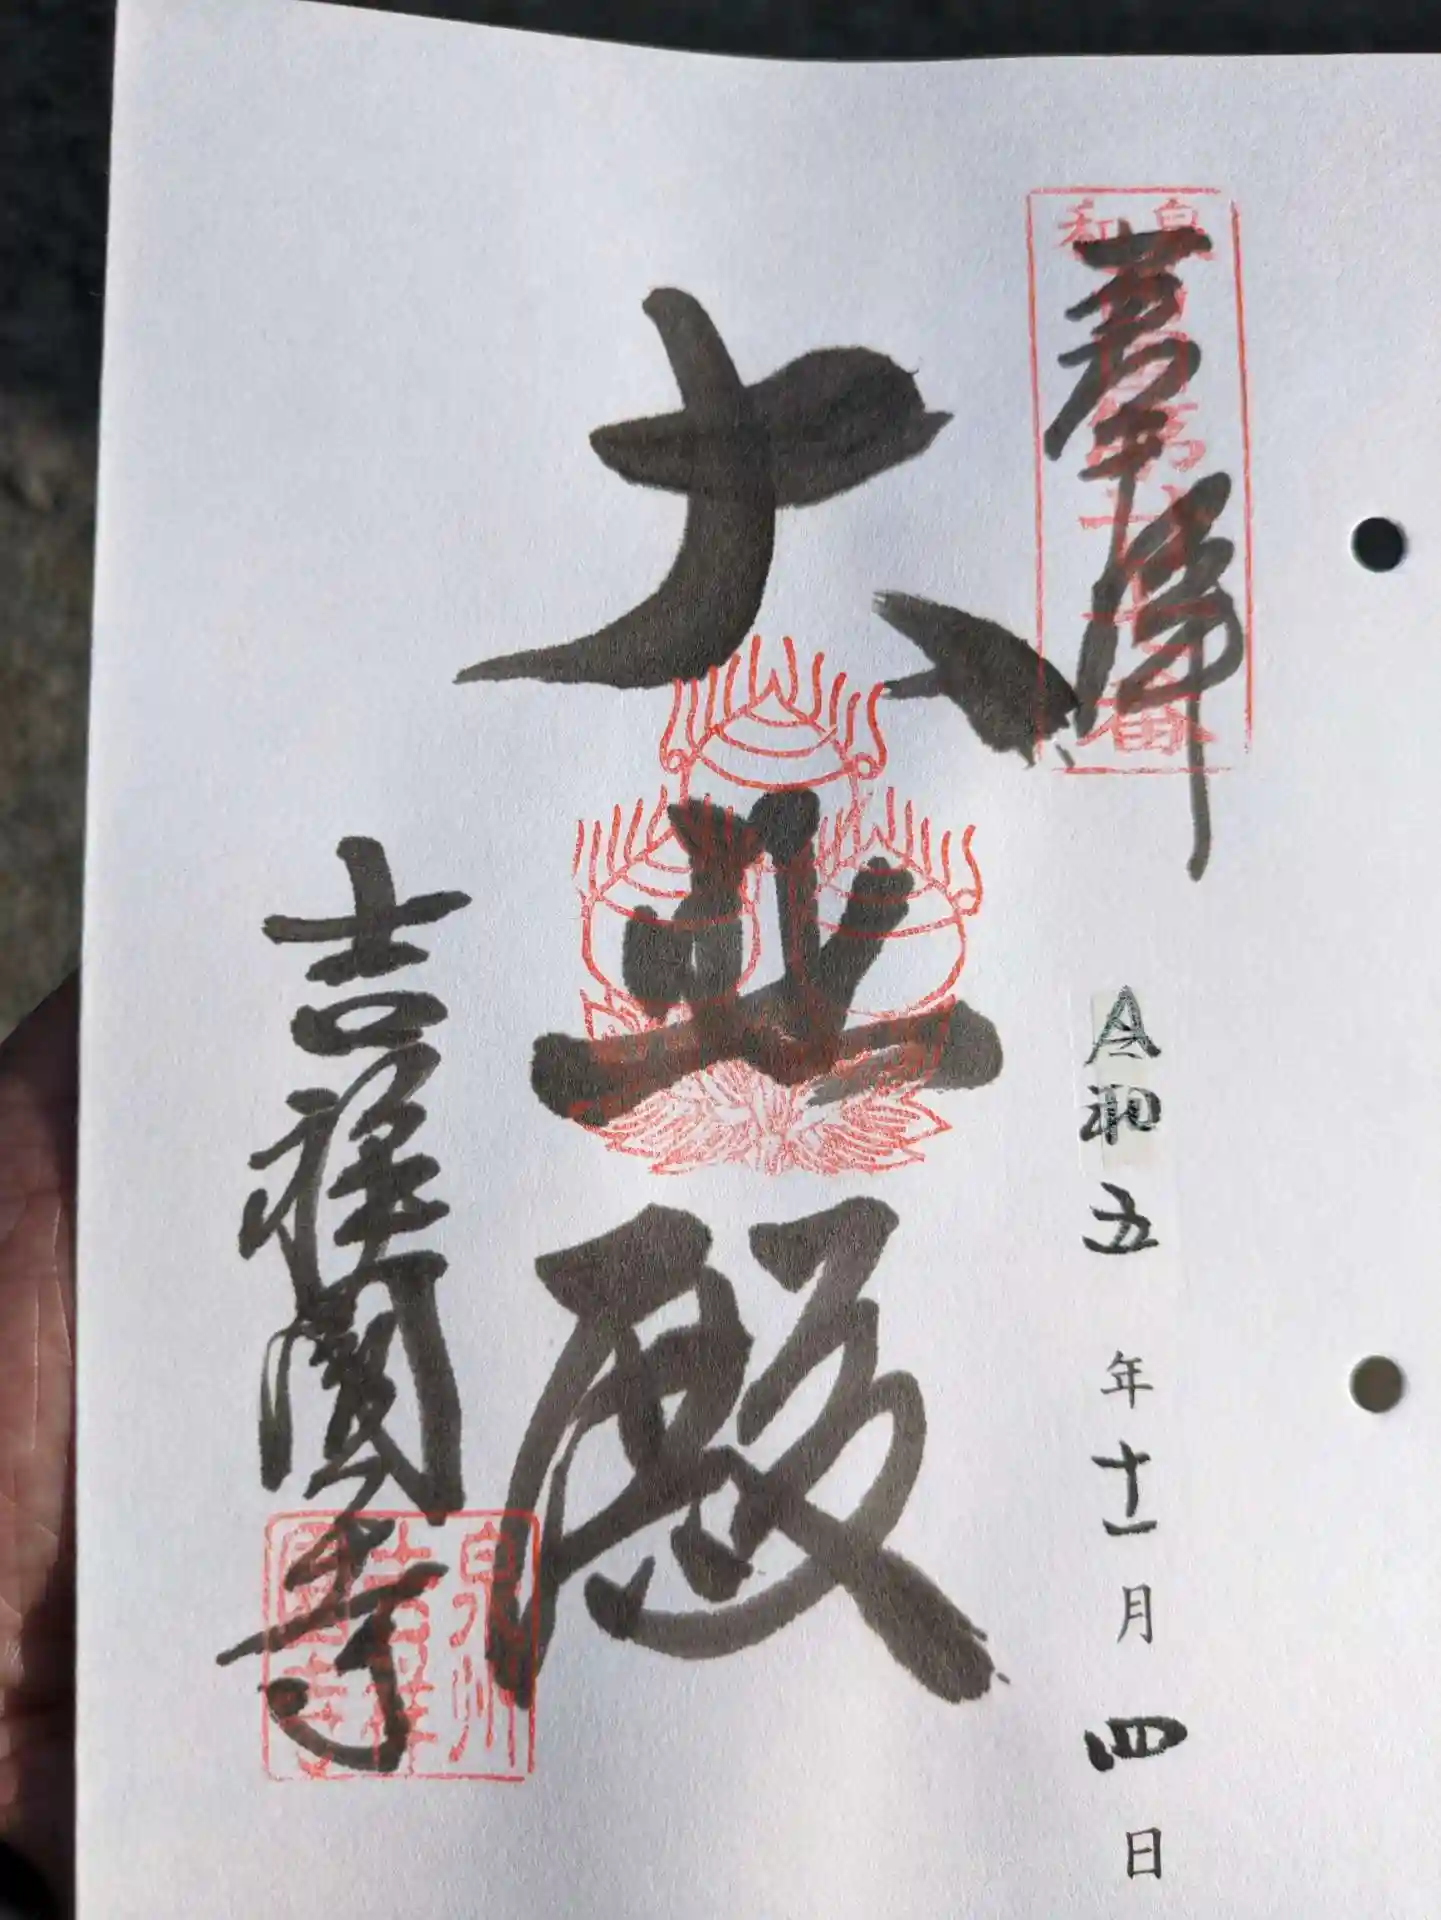 奉拝
令和五年十一月四日
大悲殿
吉祥園寺
泉州
吉祥
園寺